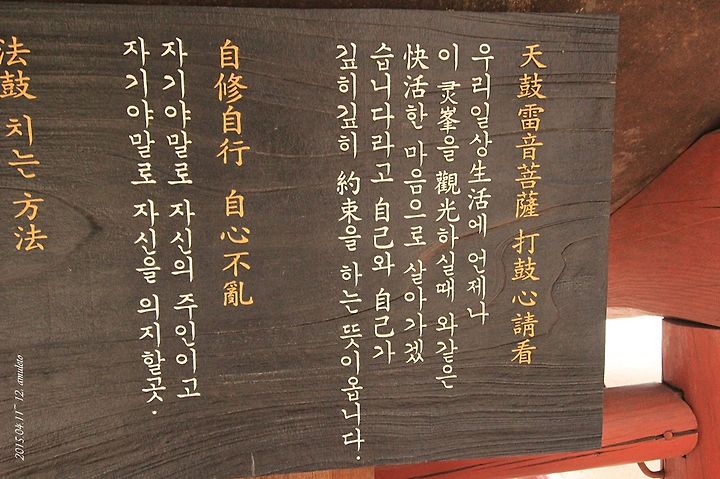 天鼓雷音菩薩 打鼓心請看
우리일상生活에 언제나
이 灵峯을 觀光하실때 와같은
快活한 마음으로 살아가겠
습니다라고 自己와 自己가
깊히깊히 約束을 하는 뜻이옵니다.
自修自行 自心不亂
자기야말로 자신의 주인이고
자기야말로 자신을 의지할곳.
法鼓 치는 方法
2015.04.11~12. amuleto